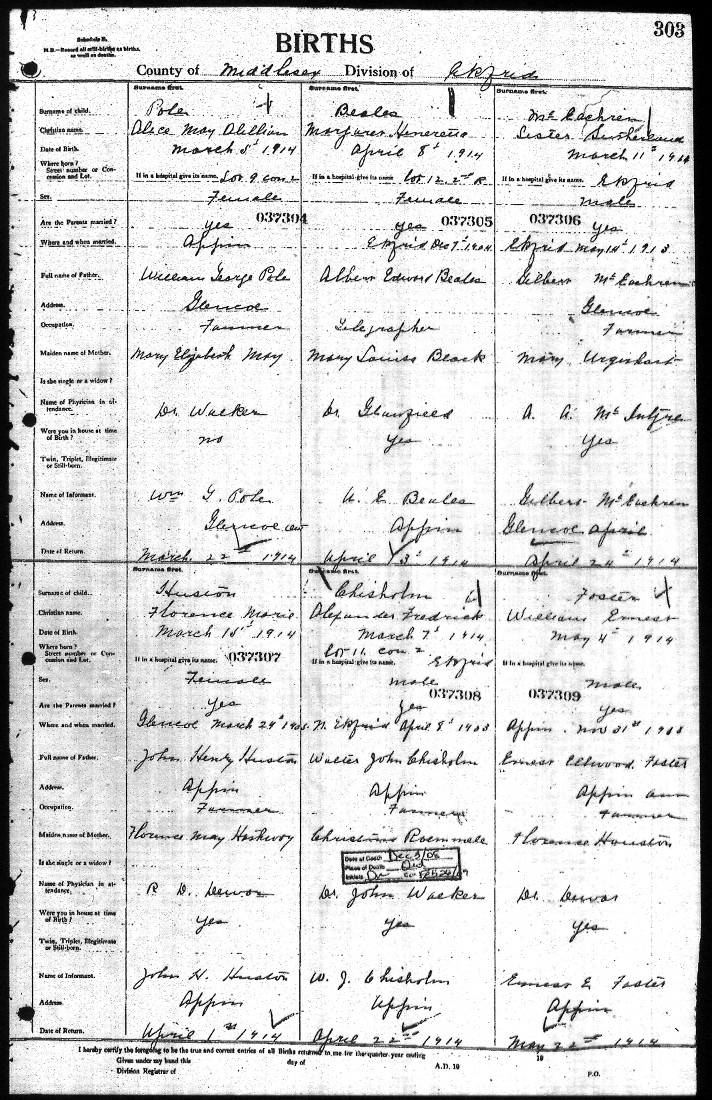 303
Schedule B.
N.B.—Record all still-births as births, as well as deaths.
BIRTHS
County of Middlesex Division of Ekfrid
Surname first. Surname first. Surname first.
Surname of child. Pole Beales McEachren
Christian name. Alice May Margaret Sister
Date of Birth. March 5th 1914 April 8th 1914 March 11th 1914
Where born? Street number or Concession and Lot. If in a hospital give its name. Lot 9 con 2 If in a hospital give its name. Lot 12. 2nd R If in a hospital give its name. Ekfrid
Sex. Female Female male
037304 037305 037306
Are the Parents married? yes yes yes
Where and when married. Appin Ekfrid Dec 7th 1904 Ekfrid May 14th 1913
Full name of Father. William George Pole Albert Edward Beales Gilbert McEachren
Address. Glencoe Glencoe
Occupation. Farmer Telegrapher Farmer
Maiden name of Mother. Mary Elizabeth May Mary Louisa Black Mary Urquhart
Is she single or a widow?
Name of Physician in attendance. Dr. Walker Dr. A. A. McIntyre
Were you in house at time of Birth? no yes yes
Twin, Triplet, Illegitimate or Still-born.
Name of Informant. Wm G. Pole A. E. Beales Gilbert McEachren
Address. Glencoe Appin Glencoe April
Date of Return. March 22nd 1914 April 3rd 1914 April 24th 1914
Surname first. Surname first. Surname first.
Surname of child. Huston Chisholm Foster
Christian name. Florence Marie Alexander Fredrick William Ernest
Date of Birth. March 1914 March 7th 1914 May 4th 1914
Where born? Street number or Concession and Lot. If in a hospital give its name. Lot 11. con 2 Ekfrid If in a hospital give its name. If in a hospital give its name.
037307 037308 037309
Sex. Female male male
Are the Parents married? yes yes yes
Where and when married. Glencoe March 29th N. Ekfrid April 8th 1903 Appin Nov
Full name of Father. John Henry Huston Walter John Chisholm Ernest Ellwood Foster
Address. Appin Appin Appin
Occupation. Farmer Farmer Farmer
Maiden name of Mother. Florence May Christina Roemmele Florence Houston
Is she single or a widow?
Date of Death Dec 3/08
Place of Death
Initials
Name of Physician in attendance. P. D. Dewar Dr. John Walker Dr. Dewar
Were you in house at time of Birth? yes yes yes
Twin, Triplet, Illegitimate or Still-born.
Name of Informant. John H. Huston W. J. Chisholm Ernest E Foster
Address Appin Appin Appin
Date of Return. April 1st 1914 April 22nd 1914 May 22nd 1914
I hereby certify the foregoing to be the true and correct entries of all Births returned to me for the quarter year ending 19
Given under my hand this day of A.D. 19
Division Registrar of P.O.